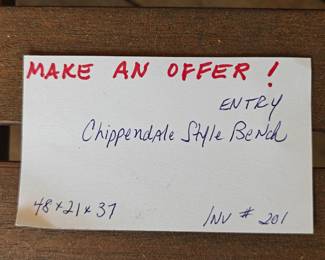 MAKE AN OFFER !
ENTRY
Chippendale Style Bench
48x21x37
INV # 201